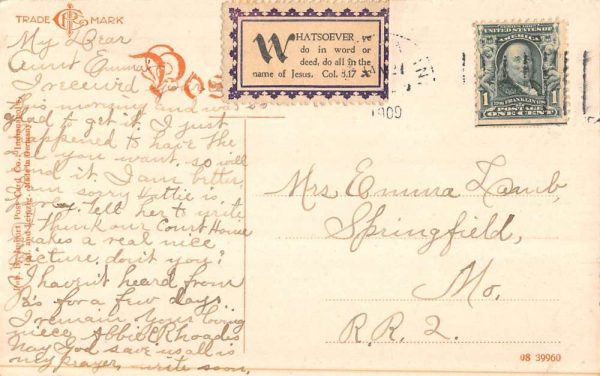 TRADE MARK
My Dear
Aunt Emma:
I received
this morning and was
glad to get it. I just
happened to have the
you want. so will
send it. I am better,
am sorry Hattie is
Tell her to write.
Think our Court House
makes a real nice
picture, don't you?
I haven't heard from
for a few days.
I remain your loving
niece Abbie Rhoads
May God save us all is
my prayer. write soon.
Pos
WHATSOEVER ye
do in word or
deed, do all in the
name of Jesus. Col. 3.17
1909
SERIES 1902
UNITED STATES OF
AMERICA
1 FRANKLIN 1
POSTAGE
ONE CENT
Mrs. Emma Lamb,
Springfield,
Mo.
R.R. 2.
08 39960